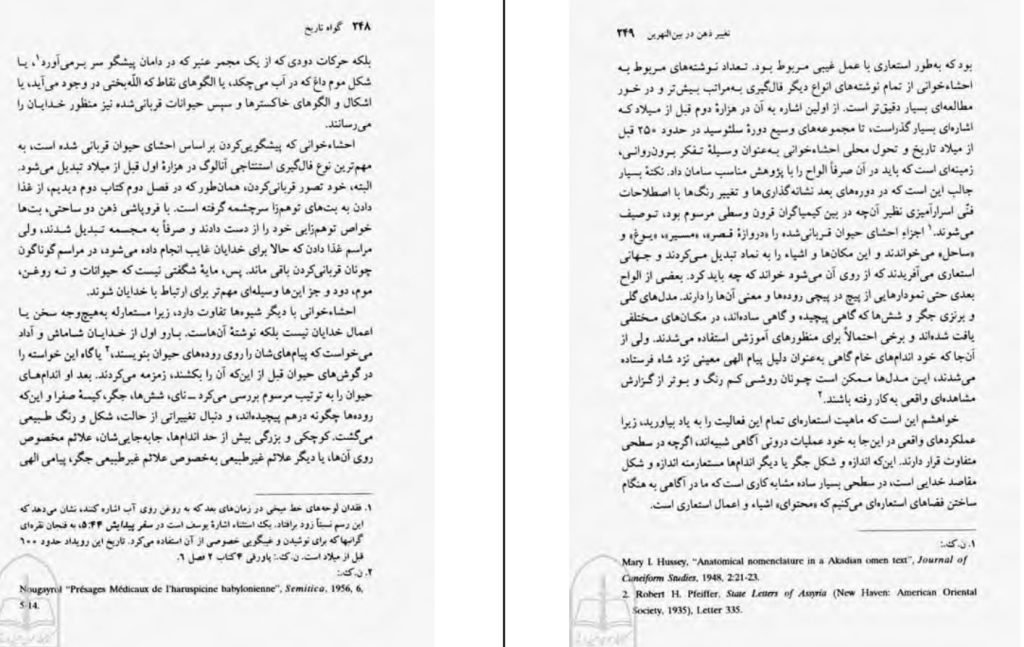 ۲۴۸ گواه تاریخ
بلکه حرکات دودی که از یک مجمر عنبر که در دامان پیشگو سر برمی‌آورد۱، یا
شکل موم داغ که در آب می‌چکد، یا الگوهای نقاط که اللّه‌بختی در وجود می‌آید، یا
اشکال و الگوهای خاکسترها و سپس حیوانات قربانی‌شده نیز منظور خدایان را
می‌رسانند.
احشاءخوانی که پیشگویی‌کردن بر اساس احشای حیوان قربانی شده است، به
مهم‌ترین نوع فال‌گیری استنتاجی آنالوگ در هزارهٔ اول قبل از میلاد تبدیل می‌شود.
البته، خود تصور قربانی‌کردن، همان‌طور که در فصل دوم کتاب دوم دیدیم، از غذا
دادن به بت‌های توهم‌زا سرچشمه گرفته است. با فروپاشی ذهن دو ساحتی، بت‌ها
خواص توهم‌زایی خود را از دست دادند و صرفاً به مجسمه تبدیل شدند، ولی
مراسم غذا دادن که حالا برای خدایان غایب انجام داده می‌شود، در مراسم گوناگون
چونان قربانی‌کردن باقی ماند. پس، مایهٔ شگفتی نیست که حیوانات و نه روغن،
موم، دود و جز این‌ها وسیله‌ای مهم‌تر برای ارتباط با خدایان شوند.
احشاءخوانی با دیگر شیوه‌ها تفاوت دارد، زیرا مستعارله به‌هیچ‌وجه سخن یا
اعمال خدایان نیست بلکه نوشتهٔ آن‌هاست. بارو اول از خدایان شاماش و آداد
می‌خواست که پیام‌های‌شان را روی روده‌های حیوان بنویسند،۲ یاگاه این خواسته را
در گوش‌های حیوان قبل از این‌که آن را بکشند، زمزمه می‌کردند. بعد او اندام‌های
حیوان را به ترتیب مرسوم بررسی می‌کرد ــ نای، شش‌ها، جگر، کیسهٔ صفرا و این‌که
روده‌ها چگونه درهم پیچیده‌اند، و دنبال تغییراتی از حالت، شکل و رنگ طبیعی
می‌گشت. کوچکی و بزرگی بیش از حد اندام‌ها، جابه‌جایی‌شان، علائم مخصوص
روی آن‌ها، یا دیگر علائم غیرطبیعی به‌خصوص علائم غیرطبیعی جگر، پیامی الهی
۱. فقدان لوحه‌های خط میخی در زمان‌های بعد که به روغن روی آب اشاره کنند، نشان می‌دهد که
این رسم نسبتاً زود برافتاد. یک استثناء اشارهٔ یوسف است در سفر پیدایش ۵:۴۴، به فنجان نقره‌ای
گرانبها که برای نوشیدن و غیبگویی خصوصی از آن استفاده می‌کرد. تاریخ این رویداد حدود ۶۰۰
قبل از میلاد است. ن. ک.: پاورقی ۴ کتاب ۲ فصل ۶.
۲. ن. ک.:
Nougayrol "Présages Médicaux de l'haruspicine babylonienne", Semitica, 1956, 6,
5-14.
تغییر ذهن در بین‌النهرین ۲۴۹
بود که به‌طور استعاری با عمل غیبی مربوط بود. تعداد نوشته‌های مربوط به
احشاءخوانی از تمام نوشته‌های انواع دیگر فال‌گیری به‌مراتب بیش‌تر و در خور
مطالعه‌ای بسیار دقیق‌تر است. از اولین اشاره به آن در هزارهٔ دوم قبل از میلاد که
اشاره‌ای بسیار گذراست، تا مجموعه‌های وسیع دورهٔ سلئوسید در حدود ۲۵۰ قبل
از میلاد تاریخ و تحول محلی احشاءخوانی به‌عنوان وسیلهٔ تفکر برون‌روانی،
زمینه‌ای است که باید در آن صرفاً الواح را با پژوهش مناسب سامان داد. نکتهٔ بسیار
جالب این است که در دوره‌های بعد نشانه‌گذاری‌ها و تغییر رنگ‌ها با اصطلاحات
فنّی اسرارآمیزی نظیر آن‌چه در بین کیمیاگران قرون وسطی مرسوم بود، توصیف
می‌شوند.۱ اجزاء احشای حیوان قربانی‌شده را «دروازهٔ قصر»، «مسیر»، «یوغ» و
«ساحل» می‌خواندند و این مکان‌ها و اشیاء را به نماد تبدیل می‌کردند و جهانی
استعاری می‌آفریدند که از روی آن می‌شود خواند که چه باید کرد. بعضی از الواح
بعدی حتی نمودارهایی از پیچ در پیچی روده‌ها و معنی آن‌ها را دارند. مدل‌های گلی
و برنزی جگر و شش‌ها که گاهی پیچیده و گاهی ساده‌اند، در مکان‌های مختلفی
یافت شده‌اند و برخی احتمالاً برای منظورهای آموزشی استفاده می‌شدند. ولی از
آن‌جا که خود اندام‌های خام گاهی به‌عنوان دلیل پیام الهی معینی نزد شاه فرستاده
می‌شدند، این مدل‌ها ممکن است چونان روشی کم رنگ و بوتر از گزارش
مشاهده‌ای واقعی به‌کار رفته باشند.۲
خواهشم این است که ماهیت استعاره‌ای تمام این فعالیت را به یاد بیاورید، زیرا
عملکردهای واقعی در این‌جا به خود عملیات درونی آگاهی شبیه‌اند، اگرچه در سطحی
متفاوت قرار دارند. این‌که اندازه و شکل جگر یا دیگر اندام‌ها مستعارمنه اندازه و شکل
مقاصد خدایی است، در سطحی بسیار ساده مشابه کاری است که ما در آگاهی به هنگام
ساختن فضاهای استعاره‌ای می‌کنیم که «محتوای» اشیاء و اعمال استعاری است.
۱. ن. ک.:
Mary I. Hussey, "Anatomical nomenclature in a Akadian omen text", Journal of
Cuneiform Studies, 1948, 2:21-23.
2. Robert H. Pfeiffer, State Letters of Assyria (New Haven: American Oriental
Society, 1935), Letter 335.